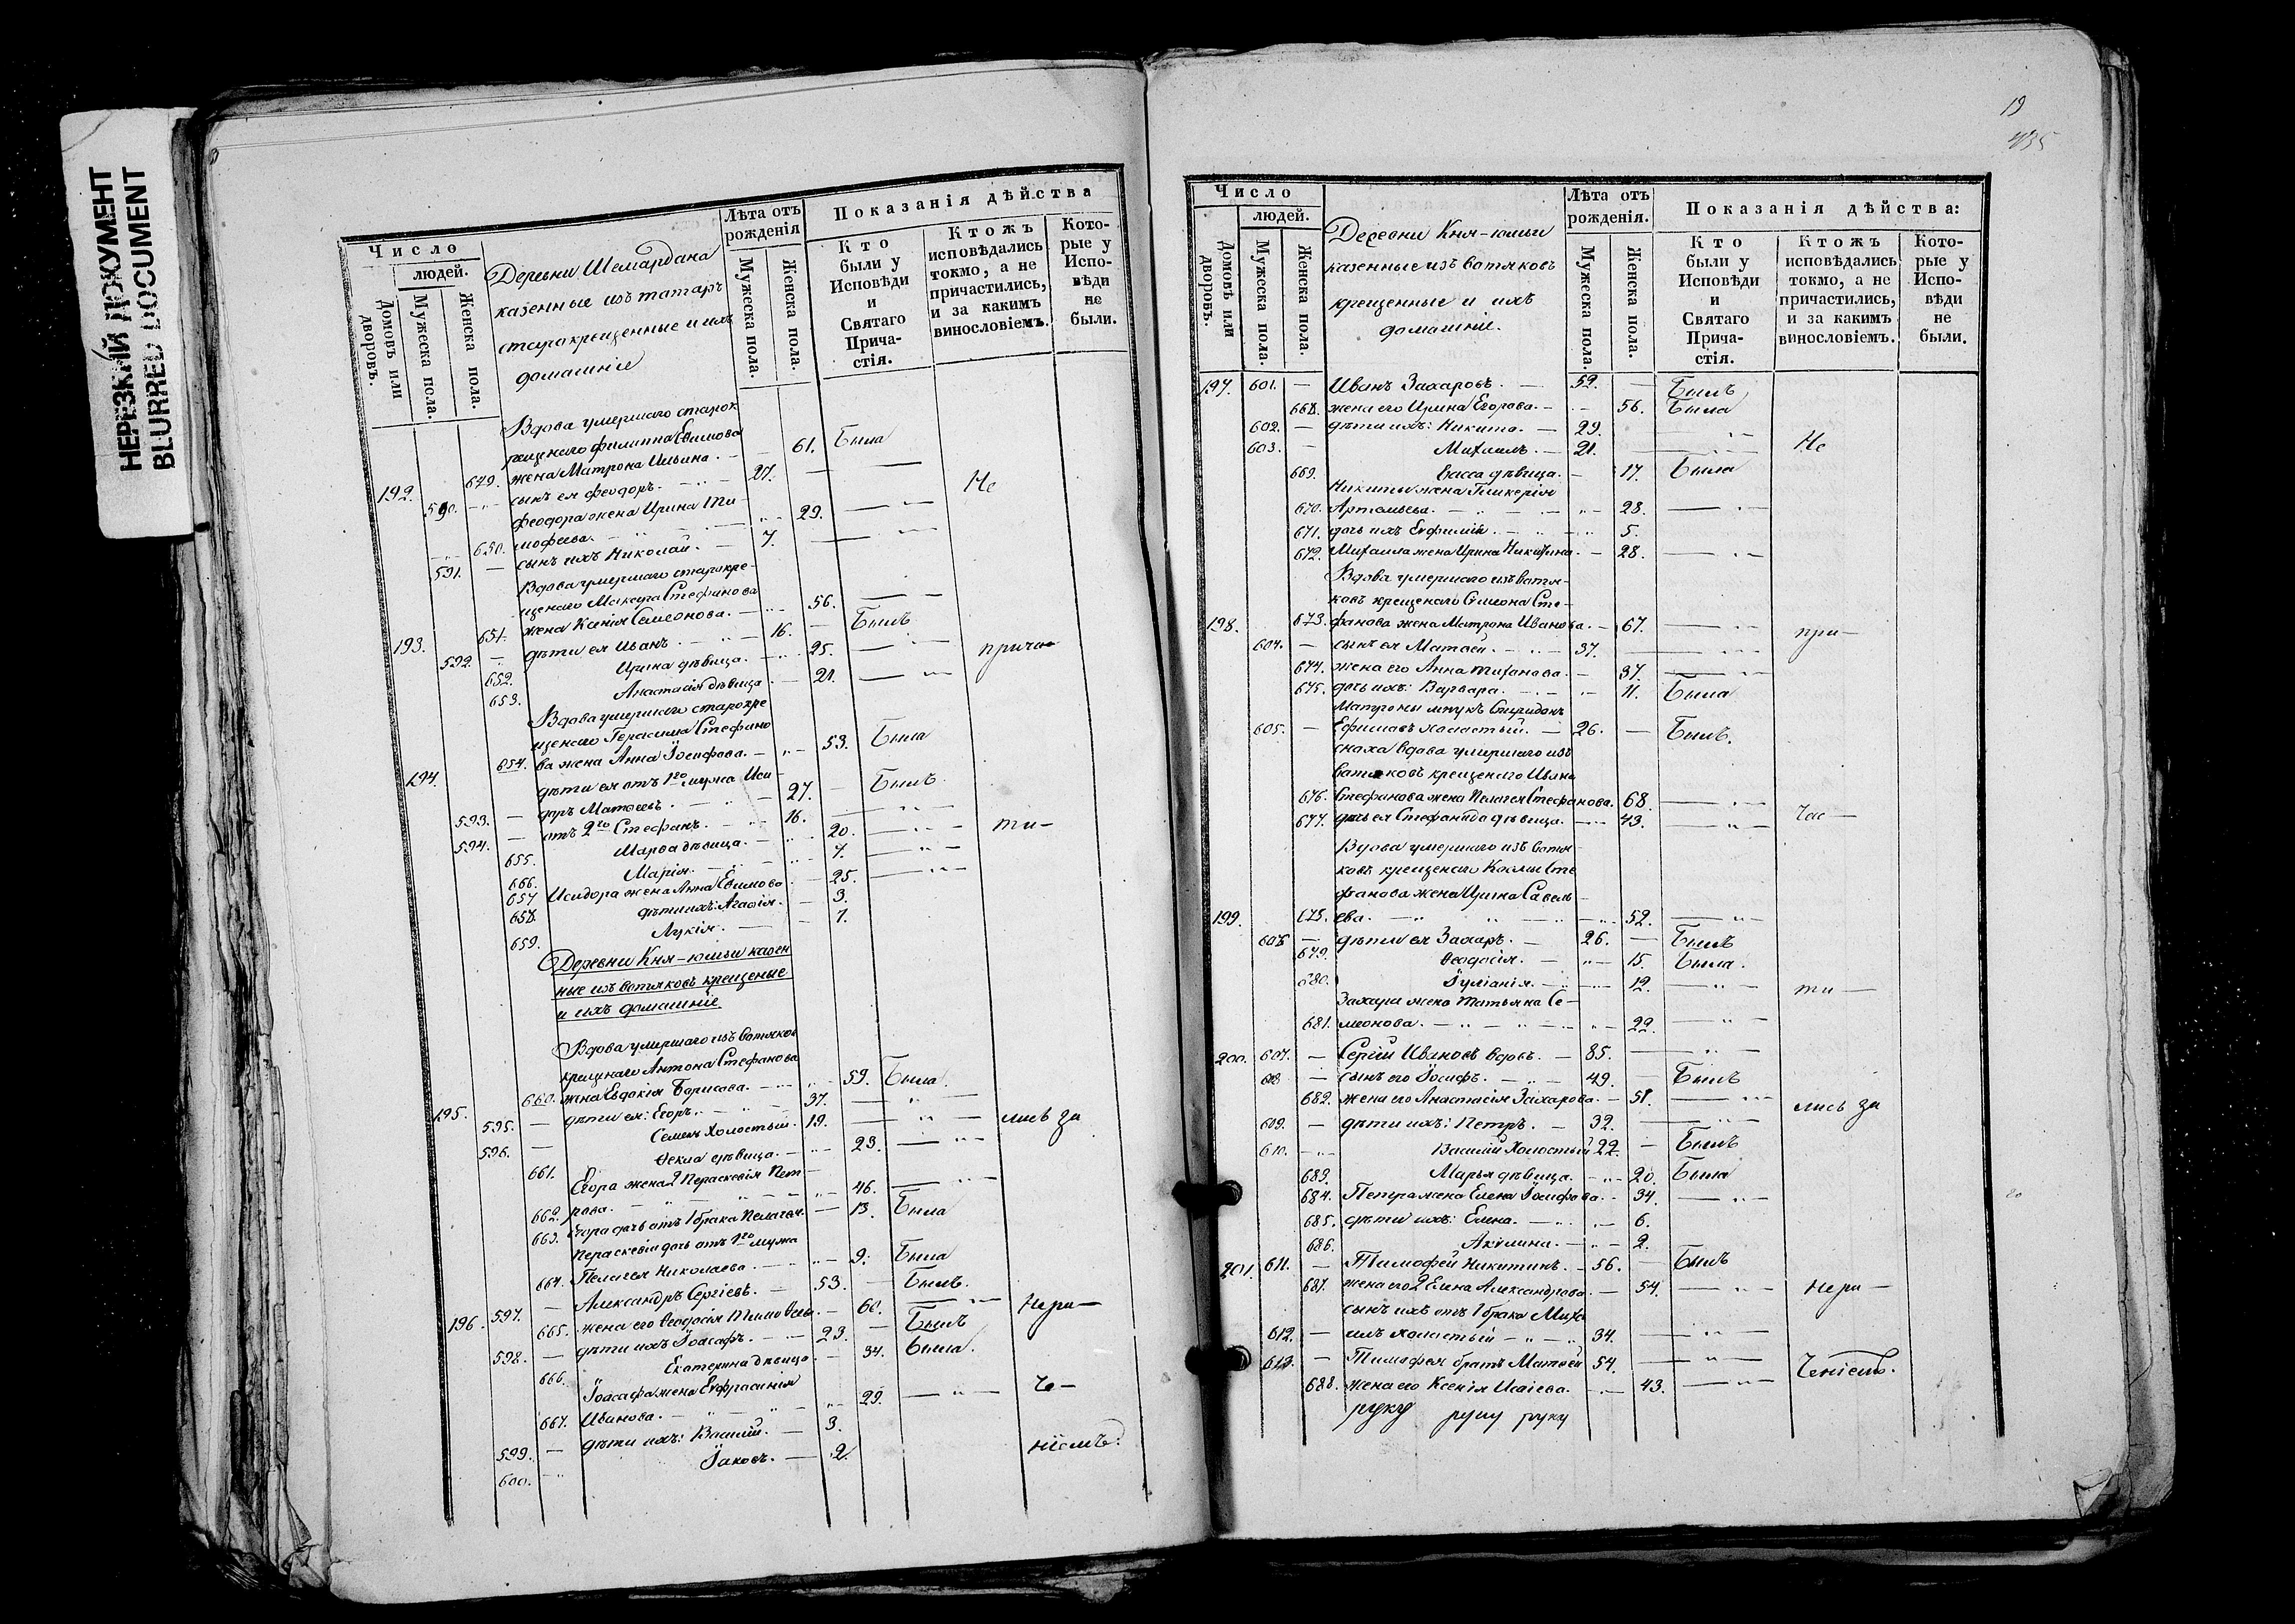 НЕРЕЗКИЙ ДОКУМЕНТ
BLURRED DOCUMENT
Число
людей.
Домовъ или дворовъ.
Мужеска пола.
Женска пола.
Деревни Шемардана
казенные изъ татаръ
старокрещенные и ихъ
домашніе
Лѣта отъ рожденія
Мужеска пола.
Женска пола.
Показанія дѣйства
Кто были у Исповѣди и Святаго Прича-стія.
Ктожъ исповѣдались токмо, а не причастились, и за какимъ винословіемъ.
Кото-рые у Испо-вѣди не были.
Вдова умершаго старок
рещенаго Филиппа Евимова
192. 649. жена Матрона Ильина. — 61. Была
590. сынъ ея Феодоръ. — 27. —
Феодора жена Ирина Ти-
650. мофеева. — 29. — Не
591. — сынъ ихъ Николай. — 7. —
Вдова умершаго старокре-
щенаго Макара Стефанова
193. 651. жена Ксенія Семеонова. — 56. —
592. — дѣти ея Иванъ. — 16. — Былъ
652. Ирина дѣвица. — 25. —
653. Анастасія дѣвица — 21. — прича-
Вдова умершаго старокре
щенаго Герасима Стефано
194. 654. ва жена Анна Іосифова. — 53. Была
дѣти ея отъ 1го мужа Иси-
593. — доръ Матвеевъ. — 27. — Былъ.
594. — отъ 2го Стефанъ. — 16. —
655. Марѳа дѣвица. — 20. — ти-
666. Марія. — 7. —
657 Исидора жена Анна Евимова — 25. —
658. дѣти ихъ: Агаѳія. — 3.
659. Лукія. — 1.
Деревни Кня-юмьи казен
ные изъ вотяковъ крещеные
и ихъ домашніе
Вдова умершаго изъ вотяков
крещенаго Антона Стефанова
195. 660. жена Евдокія Борисова. — 59. Была.
595. — дѣти ея: Егоръ. — 37. —
596. — Семенъ холостый. 19. — лись за
661. Ѳекла дѣвица. — 23. —
Егора жена 2 Пераскевія Пет-
662. рова. — 46. —
663. Егора дочь отъ 1 брака Пелагея. — 13. Была
Пераскевіи дочь отъ 1го мужа
664. Пелагея Николаева. — 9. Была
196. 597. — Александръ Сергіевъ. — 53. — Былъ.
665. жена его Ѳеодосія Тимоѳеева. — 60. — Нера-
598. — дѣти ихъ Іоасафъ. — 23. — Былъ
666. Екатерина дѣвица. — 34. Была.
Іоасафа жена Евфрасинія
667. Иванова. — 29. — Че-
599. — дѣти ихъ: Василій. — 3.
600. — Іаковъ. — 2. ніемъ.
19
435
Число
людей.
Домовъ или дворовъ.
Мужеска пола.
Женска пола.
Деревни Кня-юмьи
казенные изъ вотяковъ
крещенные и ихъ
домашніе.
Лѣта отъ рожденія.
Мужеска пола.
Женска пола.
Показанія дѣйства:
Кто были у Исповѣди и Святаго Прича-стія.
Ктожъ исповѣдались токмо, а не причастились, и за какимъ винословіемъ.
Кото-рые у Испо-вѣди не были.
197. 601. — Иванъ Захаровъ. — 59. — Былъ
668. жена его Ирина Егорова. — 56. Была
602. — дѣти ихъ: Никита. — 29. —
603. — Михаилъ. — 21. — Не
669. Васса дѣвица. — 17. Была
Никиты жена Гликерія
670. Артемьева. — 28. —
671. дочь ихъ Евфимія. — 5.
672. Михаила жена Ирина Никитина. — 28. —
Вдова умершаго изъ вотя-
ковъ крещенаго Симеона Сте-
198. 673. фанова жена Матрона Иванова. — 67. — при-
604. — сынъ ея Матвей. — 37. —
674. жена его Анна Тиханова. — 37. —
675. дочь ихъ: Варвара. — 11. Была
Матроны внукъ Спиридонъ
605. — Ефимовъ холостый. — 26. — Былъ.
сноха вдова умершаго изъ
вотяковъ крещенаго Ивана
676. Стефанова жена Пелагея Стефанова. 68. —
677. дочь ея Стефанида дѣвица. — 43. — час-
Вдова умершаго изъ вотя-
ковъ крещенаго Космы Сте
фанова жена Ирина Савель-
199. 678. ева. — 52. —
606 — дѣти ея Захаръ. — 26. — Былъ
679. Ѳеодосія. — 15. Была.
680. Іуліанія. — 12. — ти-
Захара жена Татьяна Се-
681. меонова. — 22. —
200. 607. — Сергій Ивановъ вдовъ. — 85. —
608 — сынъ его Іосифъ. — 49. — Былъ
682. жена его Анастасія Захарова. — 51. — лись за
609. — дѣти ихъ: Петръ. — 32. —
610. — Василій холостый 22. — Былъ
683. Марья дѣвица. — 20. Была
684. Петра жена Елена Іосифова. — 34. —
685. дѣти ихъ: Елена. — 6.
686. Акилина. — 2.
201. 611. — Тимофей Никитинъ. — 56. — Былъ
687. жена его 2 Елена Александрова. — 54. — Нера-
сынъ ихъ отъ 1 брака Миха
612. — илъ холостый — 34. —
613. — Тимофея братъ Матвей 54. — Ченіемъ.
688. жена его Ксенія Исаіева. — 43. —
руку
руку